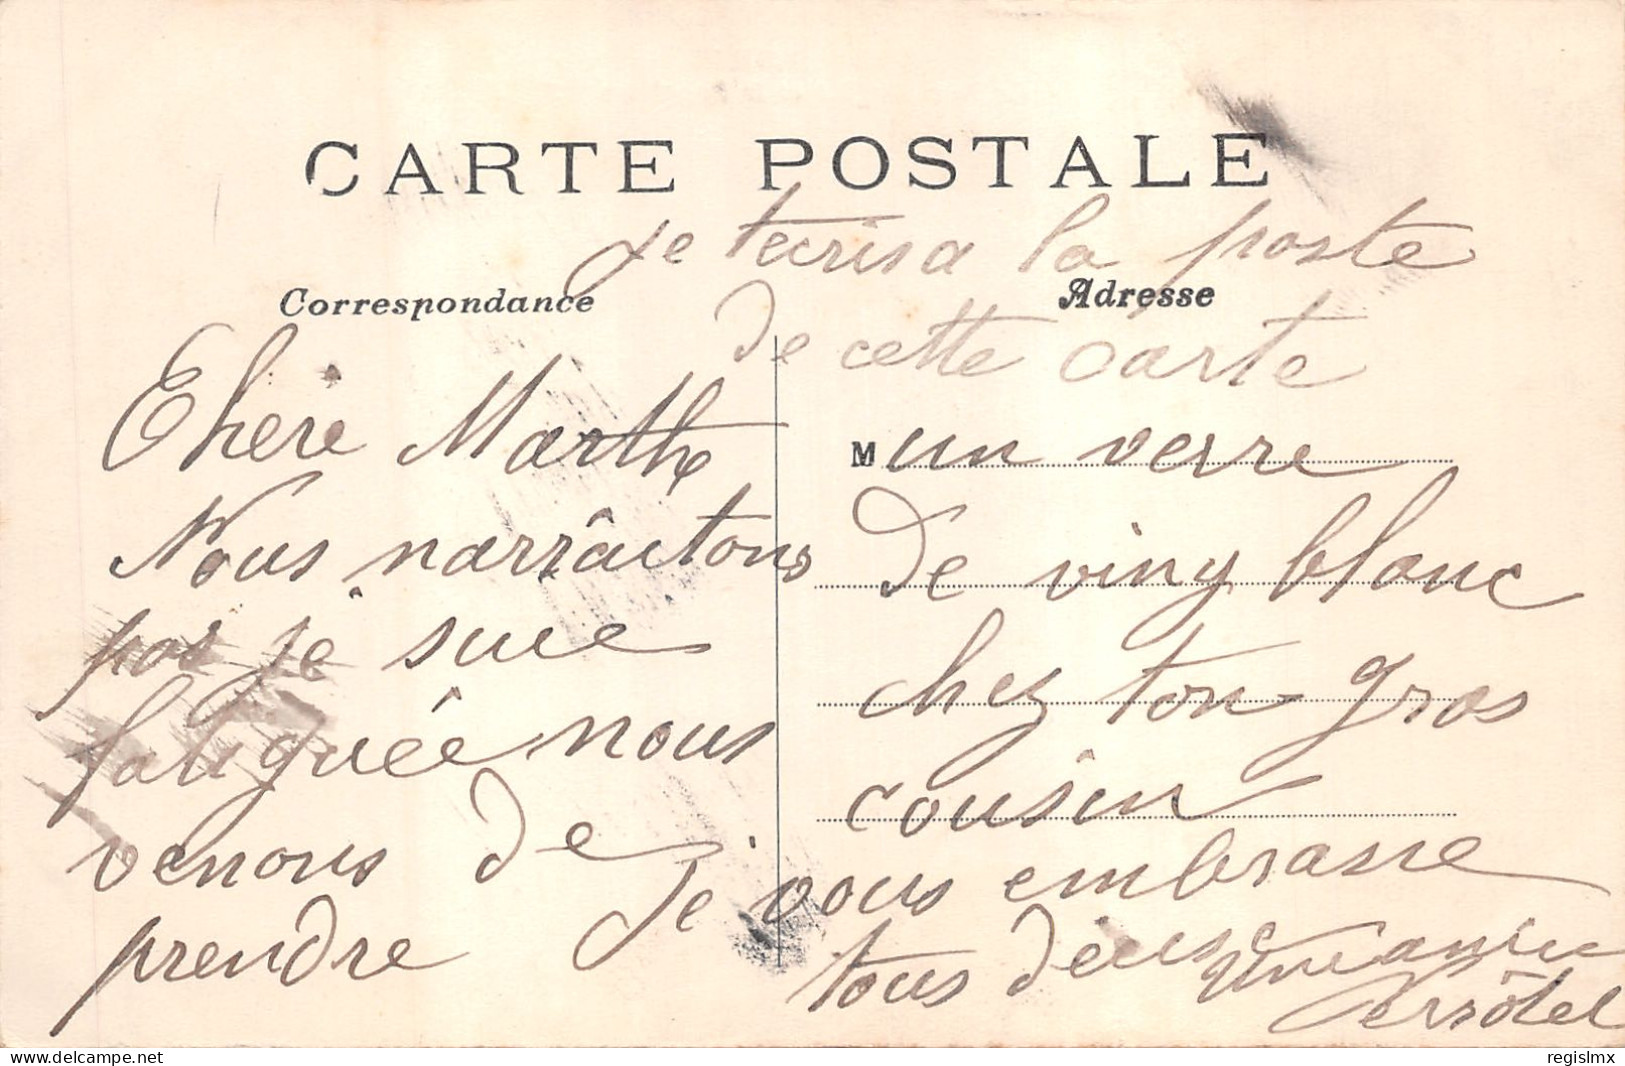 CARTE POSTALE
Je tecris a la poste
Correspondance
Adresse
de cette carte
Chère Marthe
Nous narraitons
pas je suce
fatiguée nous
venons de
prendre
M un verre
de viny blanc
chez ton gros
cousin
Je vous embrasse
tous deus
www.delcampe.net
regislmx